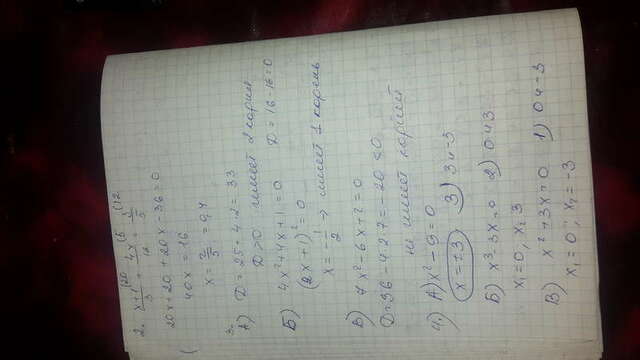 2. (x+1)/3 (20 + 4x/12 (5 = 3/5 (12
20x+20+20x-36=0
40x=16
x = 2/5 = 0,4
3.
А) D=25+4·2=33
D>0 имеет 2 корня
Б) 4x²+4x+1=0 D=16-16=0
(2x+1)²=0
x=-1/2 → имеет 1 корень
В) 7x²-6x+2=0
D=36-4·2·7=-20<0
не имеет корней
4.) А) x²-9=0
x=±3 3) 3и-3
Б) x²-3x=0 2) 0и3
x₁=0, x₂=3
В) x²+3x=0 1) 0и-3
x₁=0, x₂=-3